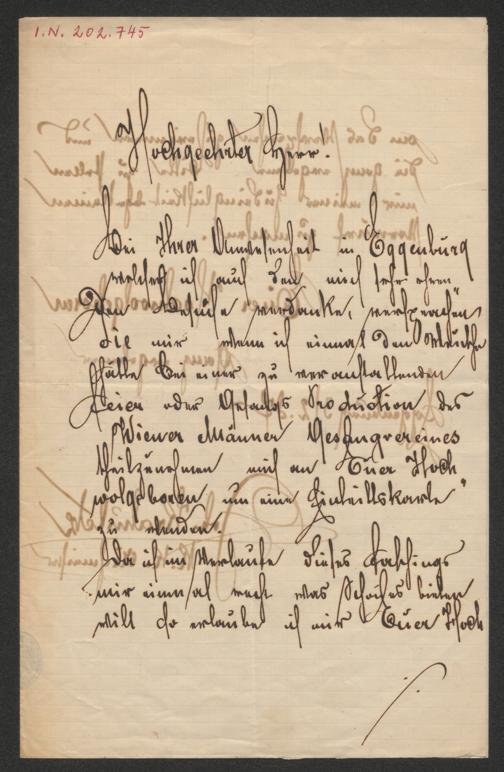 I.N. 202.745
Hochgeehrter Herr!
Bei Ihrer Anwesenheit in Eggenburg
welcher ich auch den mich sehr ehren
den Besuche verdanke, versprachen
Sie mir wenn ich einmal den Wunsch
hätte bei einer zu veranstaltenden
Feier oder Gesangs Production des
Wiener Männer Gesangvereines
theilzunehmen mich an Euer Hoch
wolgeboren um eine Eintrittskarte
zu wenden.
Da ich im Verlaufe dieses Faschings
mir einmal recht was Schönes bieten
will so erlaube ich mir Euer Hoch